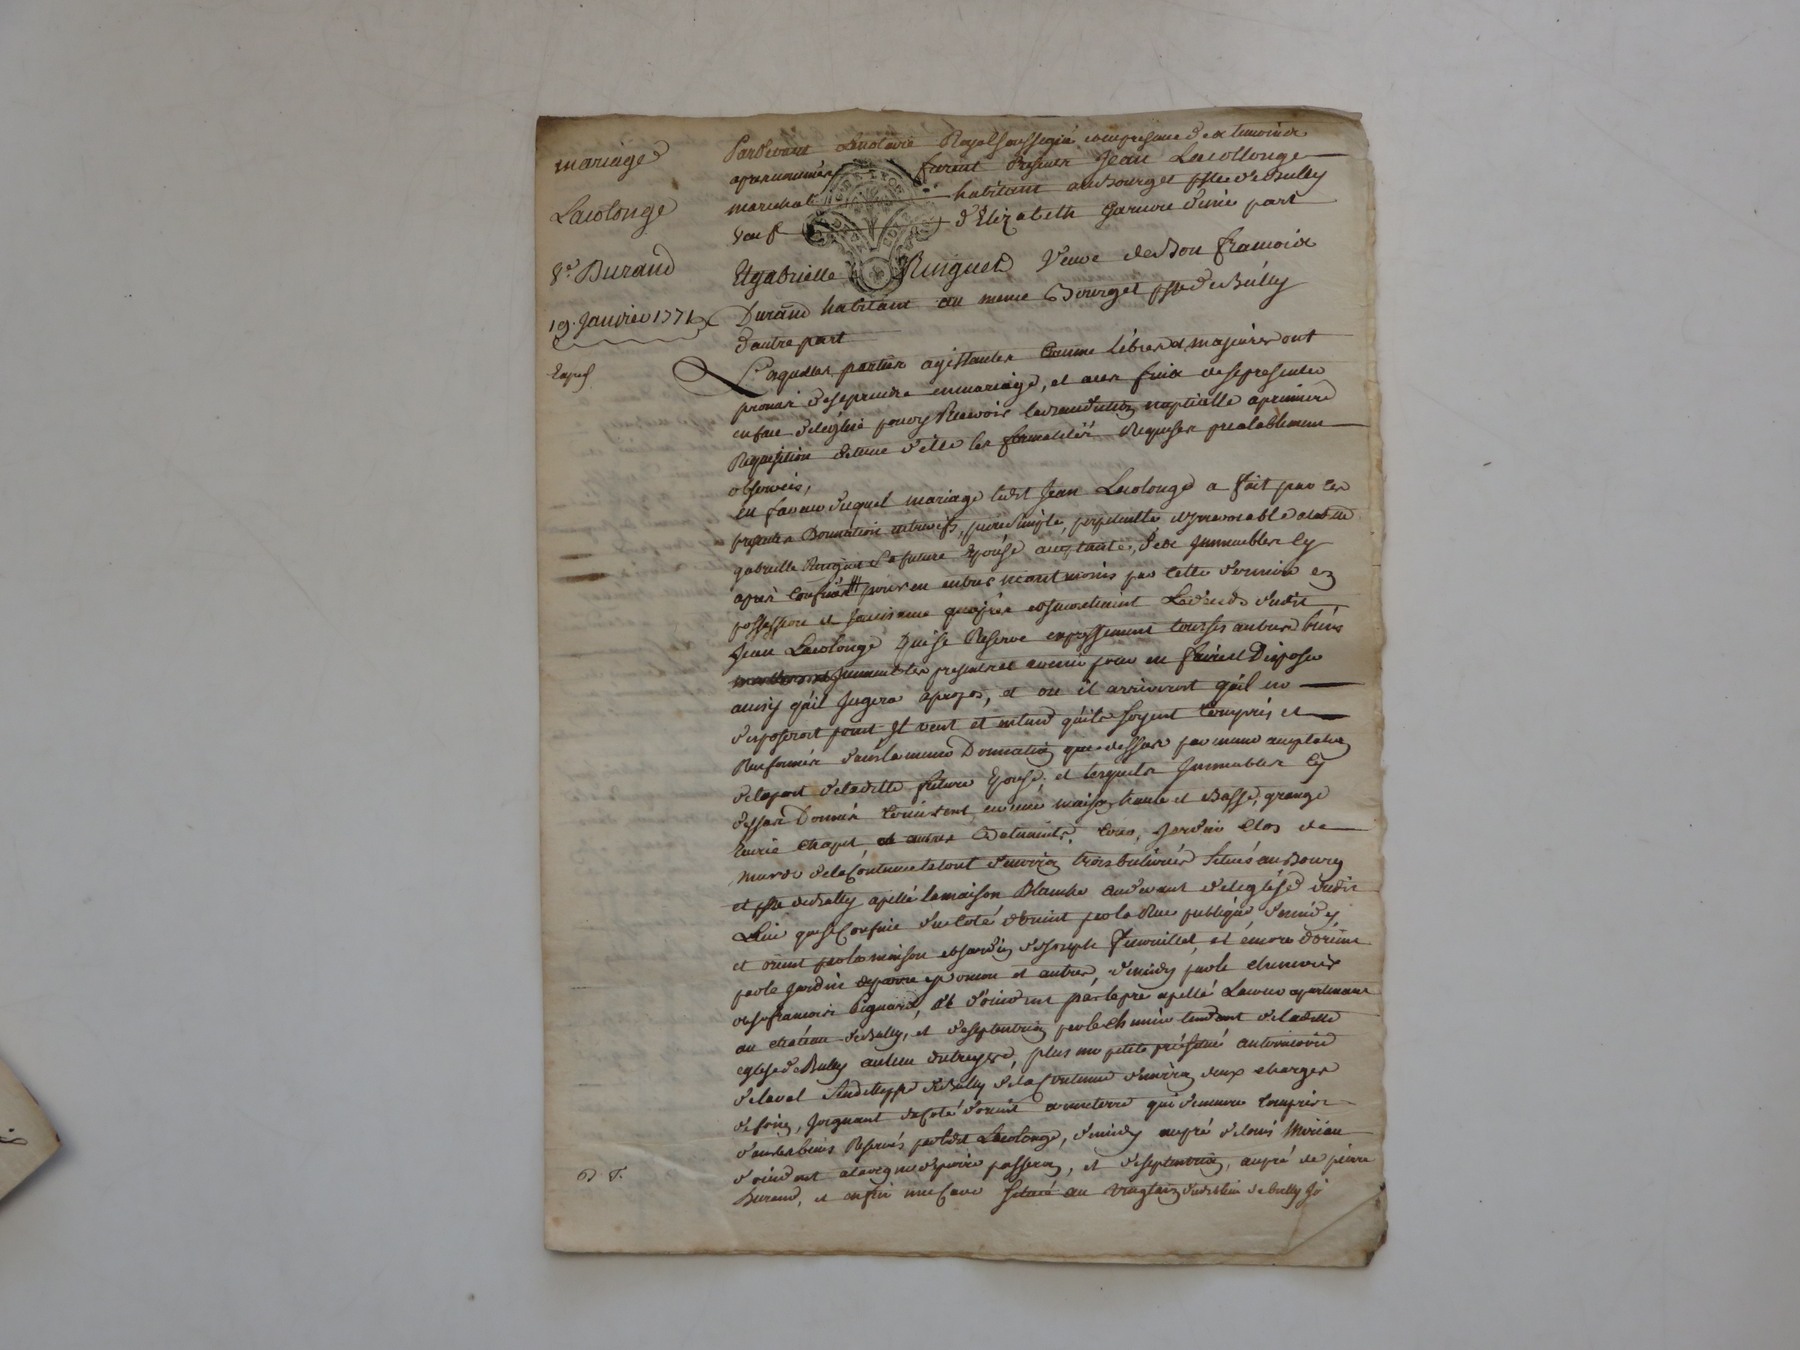 mariage
Lacolonge
Vᵉ. Durand
19. Janvier 1771
Pardevant Lenotaire Royal soussigné en presence des temoins
apres nommés furent presens Jean Lacollonge
marechal habitant au Bourg et psse de Bully
veuf d'Elizabeth d'une part
Et gabrielle Ringuet Veuve de Bon francois
Durand habitant au meme Bourg et psse de Bully
d'autre part
Lesquelles parties agissantes comme libres et majeures ont
promis de se prendre en mariage, et aux fins de se presenter
en face de l'église pour y Recevoir la Benediction nuptialle a premiere
Requisition de l'une d'elle les formalités Requises prealablement
observées,
En faveur duquel mariage ledit Jean Lacolonge a fait par ces
presentes Donnation entrevifs, pure simple, perpetuelle et irrevocable a ladite
gabrielle Ringuet sa future Epouse acceptante, des Immeubles cy
apres confinés pour en entrer par cette derniere en
possession et jouissance apres et au decès dudit
Jean Lacolonge qui se Reserve expressement tous ses autres biens
Immeubles presents et avenir pour en faire et Disposer
ainsy qu'il Jugera apropos, et ou il arriveroit qu'il n'en
disposeroit point Il veut et entend qu'ils soyent compris et
Renfermés dans la meme Donnation que dessus par meme acceptation
de la part de ladite future Epouse; et lesquels Immeubles cy
dessus Donnés consistent en une maison haute et Basse, grange
Ecurie chapit, et autres Batiments, cour, Jardin clos de
murs de la contenue le tout d'environ trois situés au Bourg
et psse de Bully apellé la maison Blanche au devant de l'eglise dudit
Lieu qui se confine du coté d'orient par la Rue publique d'midy
et orient par la maison et jardin de Joseph et encore d'orient
par le Jardin et autres, d'midy par le
de sr francois Pignard, et d'occident par le pré apellé apartenant
au chateau de Bully, et de septentrion par le chemin tendant de ladite
eglise de Bully au lieu, plus un petit pré situé au territoire
de laval susdite psse de Bully de la contenue d'environ deux charges
de foin, Joignant du coté d'orient a une terre qui demeure comprise
dans les biens Reservés par ledit Lacolonge, d'midy au pré de Louis
d'occident a la vigne de pierre passeron, et de septentrion, au pré de pierre
Durand, et enfin une Cave Située au Vingtain dudit lieu de bully